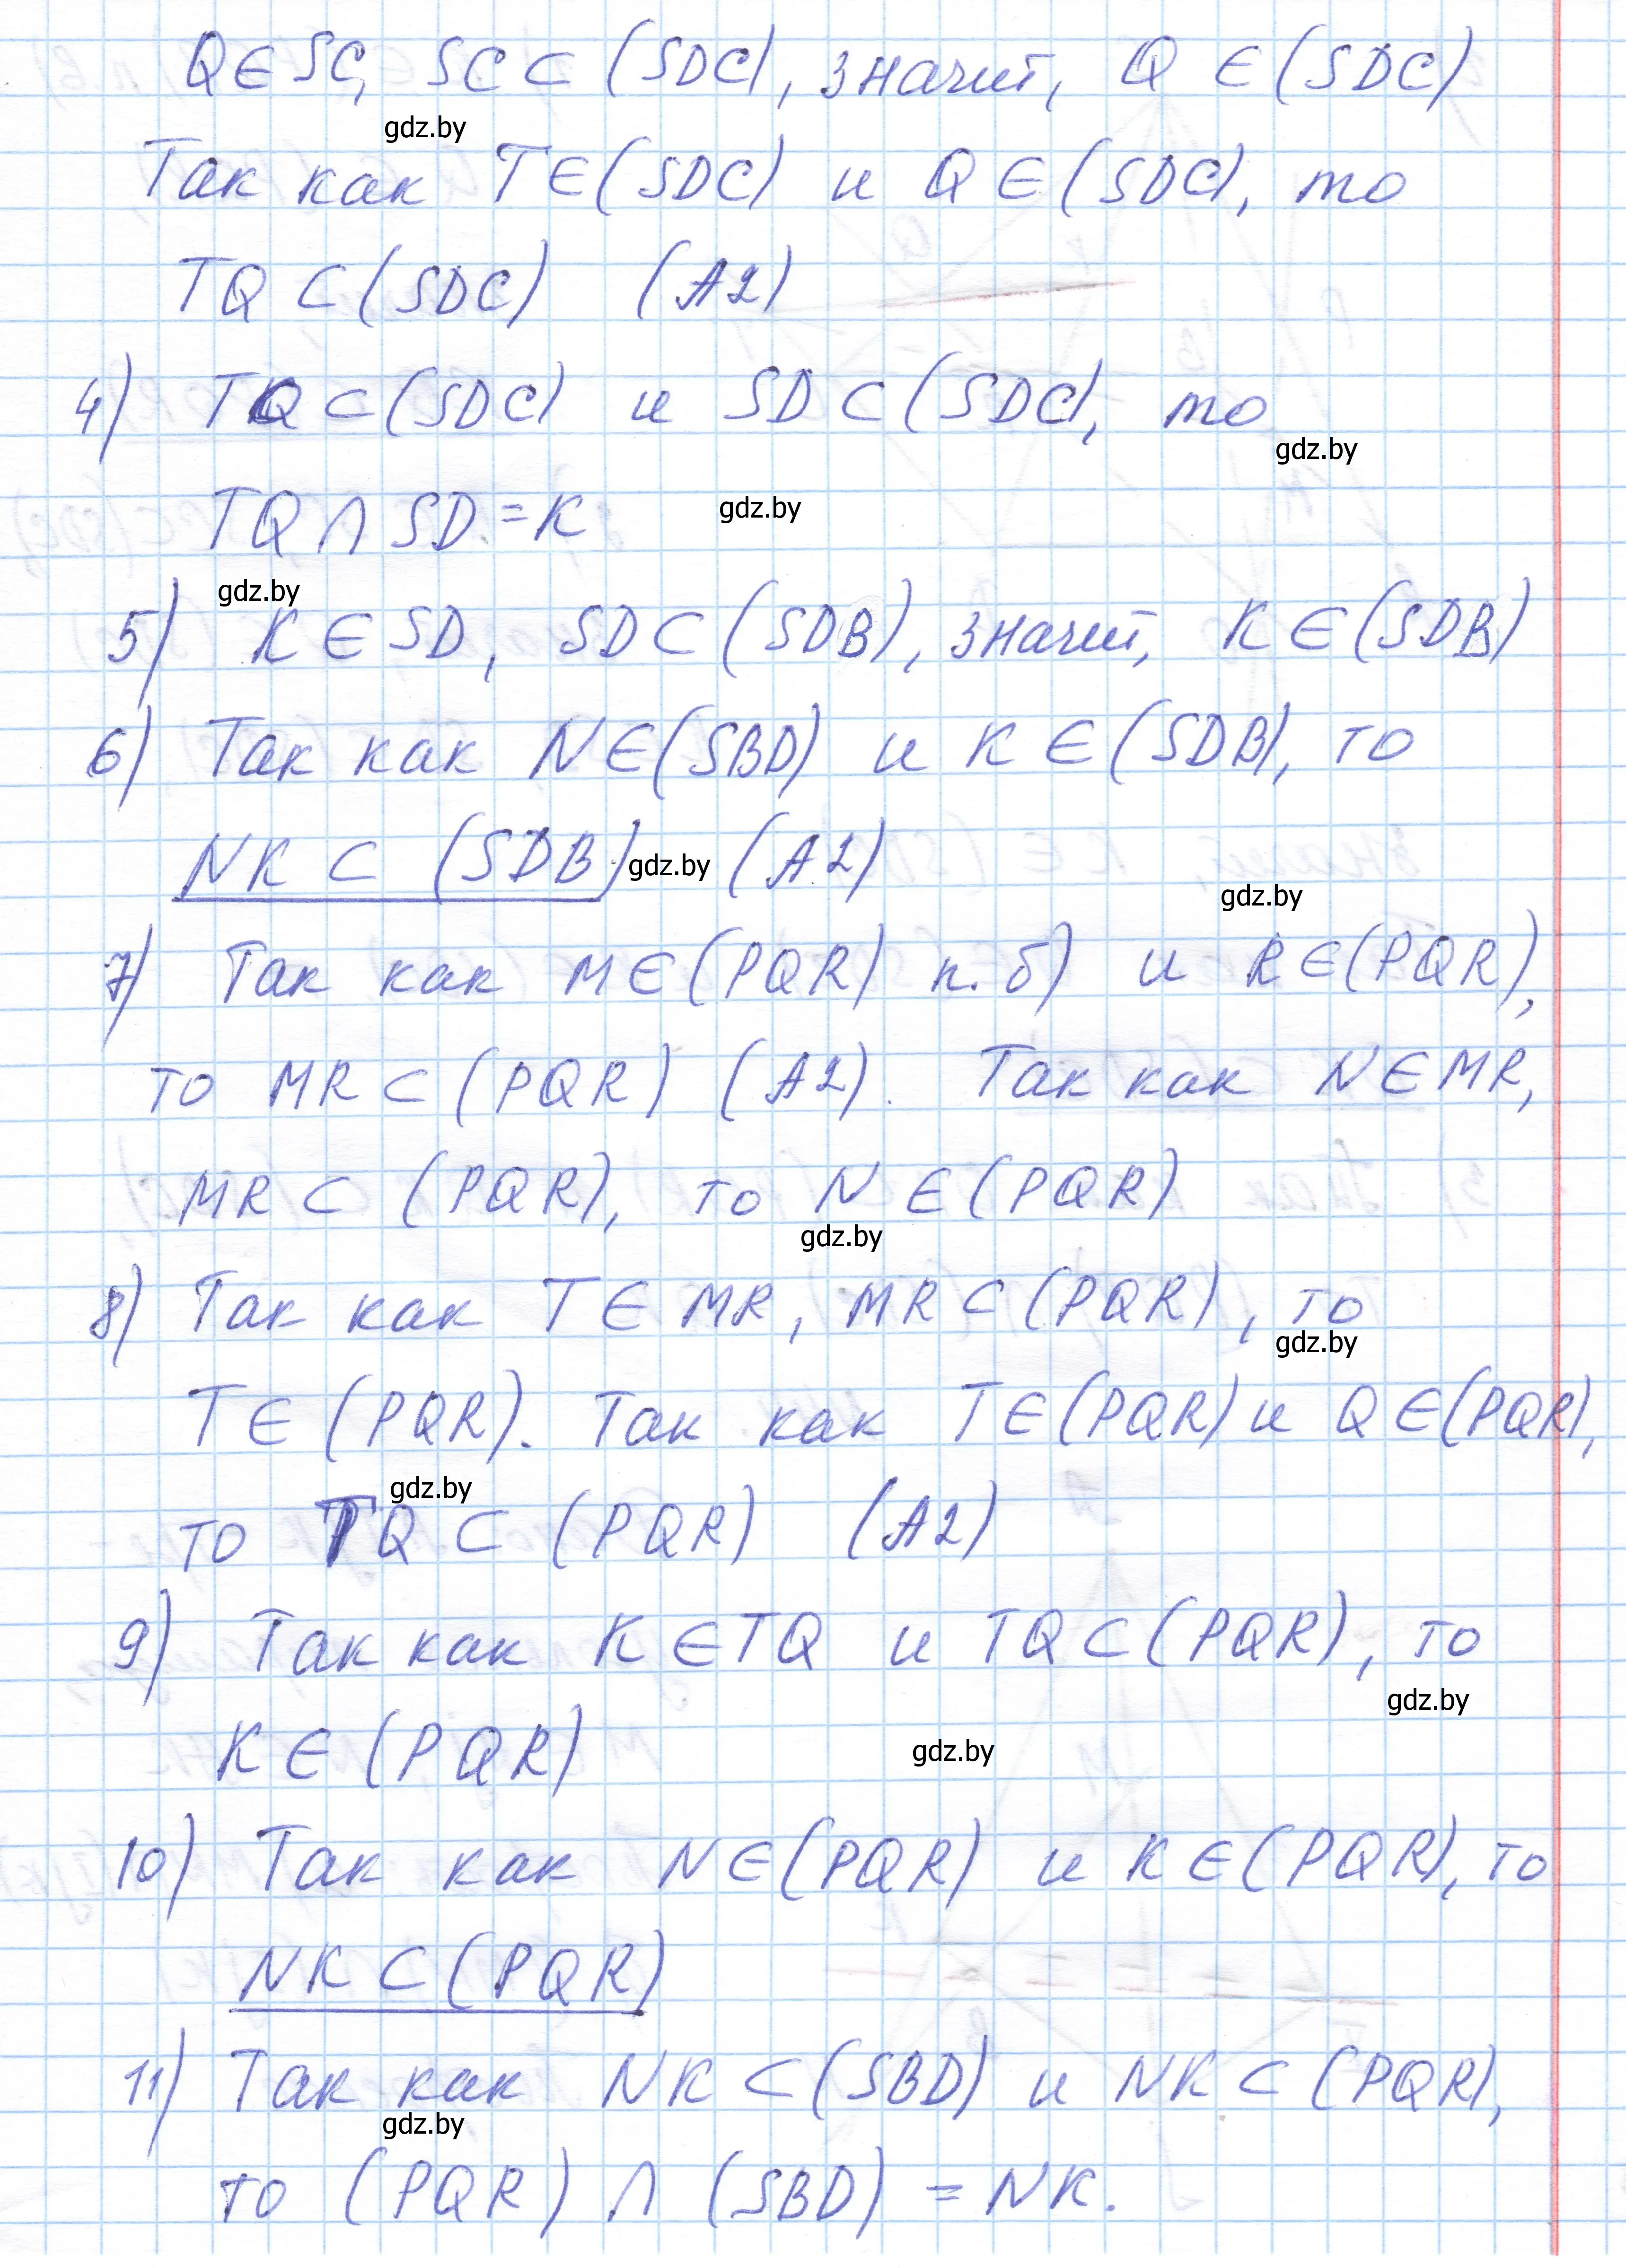 Q∈SC, SC⊂(SDC), значит, Q∈(SDC)
gdz.by
Так как T∈(SDC) и Q∈(SDC), то
TQ⊂(SDC) (A2)
4) TQ⊂(SDC) и SD⊂(SDC), то
gdz.by
TQ∩SD=K gdz.by
gdz.by
5) K∈SD, SD⊂(SDB), значит, K∈(SDB)
6) Так как N∈(SBD) и K∈(SDB), то
NK⊂(SDB) gdz.by (A2)
gdz.by
7) Так как M∈(PQR) п.б) и R∈(PQR),
то MR⊂(PQR) (A2). Так как N∈MR,
MR⊂(PQR), то N∈(PQR)
gdz.by
8) Так как T∈MR, MR⊂(PQR), то
gdz.by
T∈(PQR). Так как T∈(PQR) и Q∈(PQR),
gdz.by
то TQ⊂(PQR) (A2)
9) Так как K∈TQ и TQ⊂(PQR), то
gdz.by
K∈(PQR) gdz.by
10) Так как N∈(PQR) и K∈(PQR), то
NK⊂(PQR)
11) Так как NK⊂(SBD) и NK⊂(PQR),
gdz.by
то (PQR)∩(SBD)=NK.